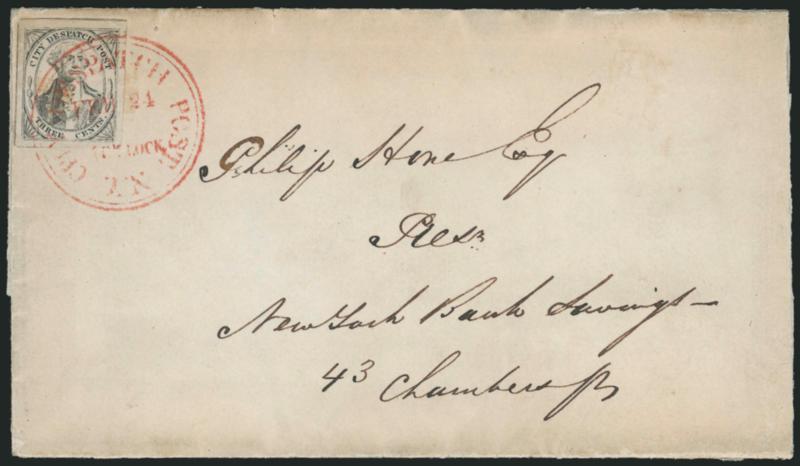 CITY DESPATCH POST
THREE CENTS.
CITY DESPATCH POST
24
O'CLOCK
N.Y.
Philip Hone Eq
Pres
New York Bank Savings
43 Chambers